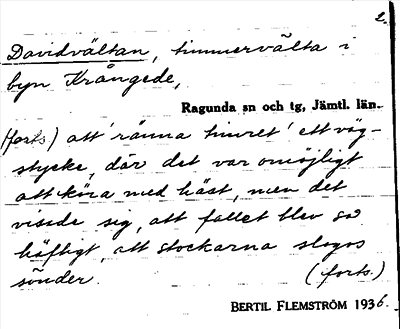 2.
Davidvältan, timmervälta i
byn Krångede,
Ragunda sn och tg, Jämtl. län.
(forts) att 'ränna timret' ett väg-
stycke, där det var omöjligt
att köra med häst, men det
visade sig, att fallet blev så
häftigt, att stockarna slogos
sönder. (forts.)
BERTIL FLEMSTRÖM 1936.